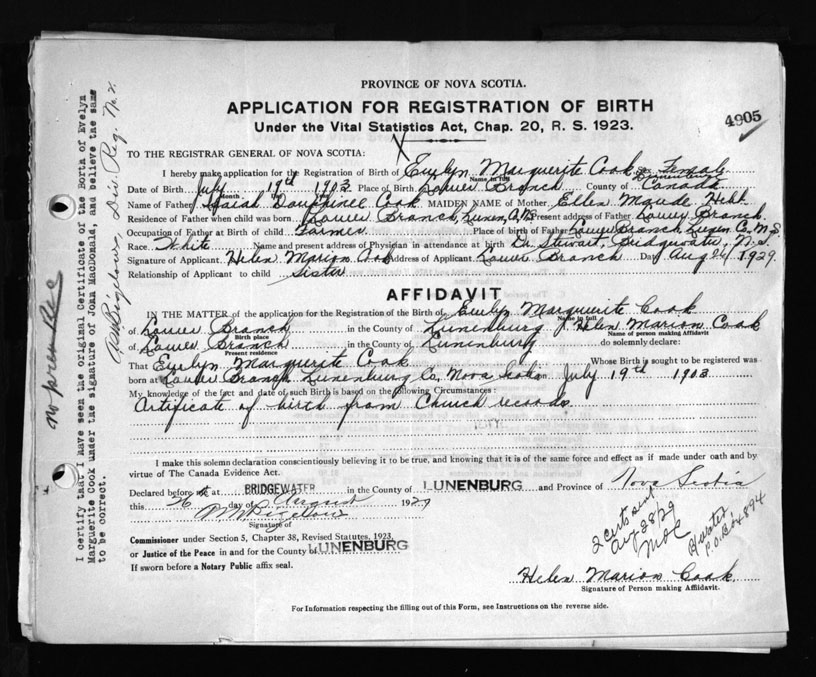 PROVINCE OF NOVA SCOTIA.
APPLICATION FOR REGISTRATION OF BIRTH
4905
Under the Vital Statistics Act, Chap. 20, R. S. 1923.
TO THE REGISTRAR GENERAL OF NOVA SCOTIA:
I hereby make application for the Registration of Birth of Evelyn Marguerite Cook Female
Name in full
Date of Birth July 19th 1903 Place of Birth Lower Branch County of Lunenburg Canada
Month
Name of Father Isaiah Dauphinee Cook MAIDEN NAME of Mother Ellen Maude Hebb
Residence of Father when child was born Lower Branch, Lunen, Co, N.S. Present address of Father Lower Branch
Occupation of Father at Birth of child Farmer Place of birth of Father Lower Branch, Lunen Co. N.S.
Race White Name and present address of Physician in attendance at birth Dr. Stewart, Bridgewater, N.S.
Signature of Applicant Helen Marion Cook Address of Applicant Lower Branch Day Aug 24 1929.
Relationship of Applicant to child sister
AFFIDAVIT
IN THE MATTER of the application for the Registration of the Birth of Evelyn Marguerite Cook
Name in full
of Lower Branch in the County of Lunenburg I, Helen Marion Cook
Birth place
Name of person making Affidavit
of Lower Branch in the County of Lunenburg do solemnly declare:
Present residence
That Evelyn Marguerite Cook Whose Birth is sought to be registered was
born at Lower Branch Lunenburg Co, Nova Scotia on July 19th 1903
My knowledge of the fact and date of such Birth is based on the following Circumstances:
Certificate of birth from Church records.
I make this solemn declaration conscientiously believing it to be true, and knowing that it is of the same force and effect as if made under oath and by
virtue of The Canada Evidence Act.
Declared before me at BRIDGEWATER in the County of LUNENBURG and Province of Nova Scotia
this 26 day of August 1929
Signature of
Commissioner under Section 5, Chapter 38, Revised Statutes, 1923,
or Justice of the Peace in and for the County of LUNENBURG
If sworn before a Notary Public affix seal.
2 certs sent
Aug 28/29
Helen Marion Cook
Signature of Person making Affidavit.
For Information respecting the filling out of this Form, see Instructions on the reverse side.
I certify that I have seen the original Certificate of the Borth of Evelyn
Marguerite Cook under the signature of John MacDonald, and believe the same
to be correct.
Div. Reg. No 2.
no prev Rec